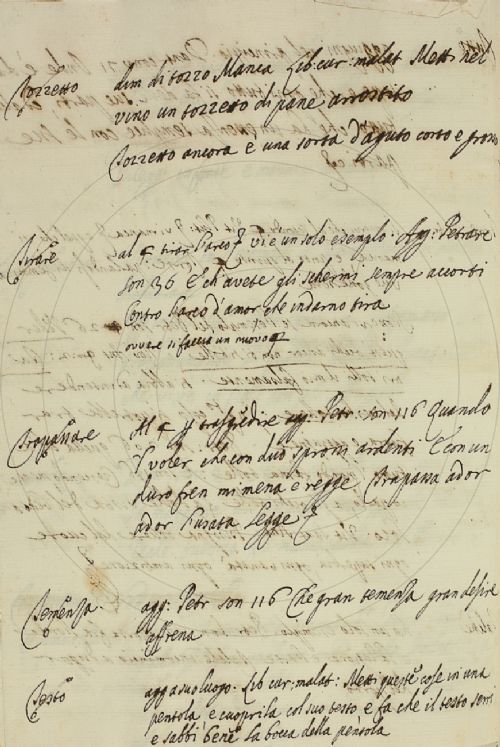 Tozzetto dim di tozzo Manca Lib: cur: malat Metti nel
vino un tozzetto di pane arrostito
Tozzetto ancora e una sorta d'aguto corto e grosso
Tirare al § tirar l'arco § vi e un solo esempio. Agg: Petrarc
son 36 E ch'avete gli schermi sempre accorti
Contro l'arco d'amor che indarno tira
ovvare si faccia un nuovo §
Trapassare Al § § trasgredire agg: Petr: son 116 Quando
'l voler che con duo sproni ardenti E con un
duro fren mi mena e regge Trapassa ad or
ad or l'usata legge §
Temenza. agg: Petr son 116 Che gran temenza gran desire
affrena
Testo agg a suo luogo. Lib cur: malat: Metti queste cose in una
pentola e cuoprila col suo testo e fa che il testo serri
e sabbi bene la bocca della pentola